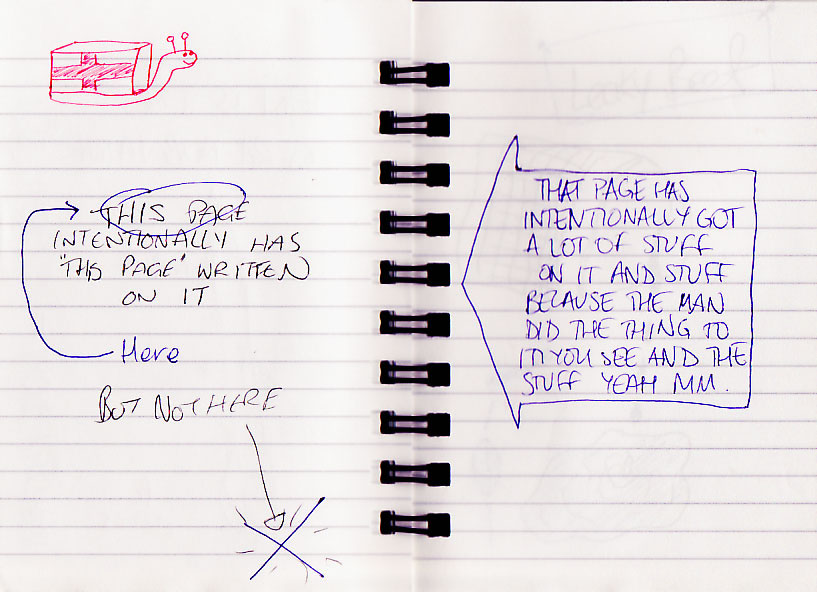 THIS PAGE
INTENTIONALLY HAS
"THIS PAGE" WRITTEN
ON IT
Here
BUT NOT HERE
THAT PAGE HAS
INTENTIONALLY GOT
A LOT OF STUFF
ON IT AND STUFF
BECAUSE THE MAN
DID THE THING TO
IT YOU SEE AND THE
STUFF YEAH MM.